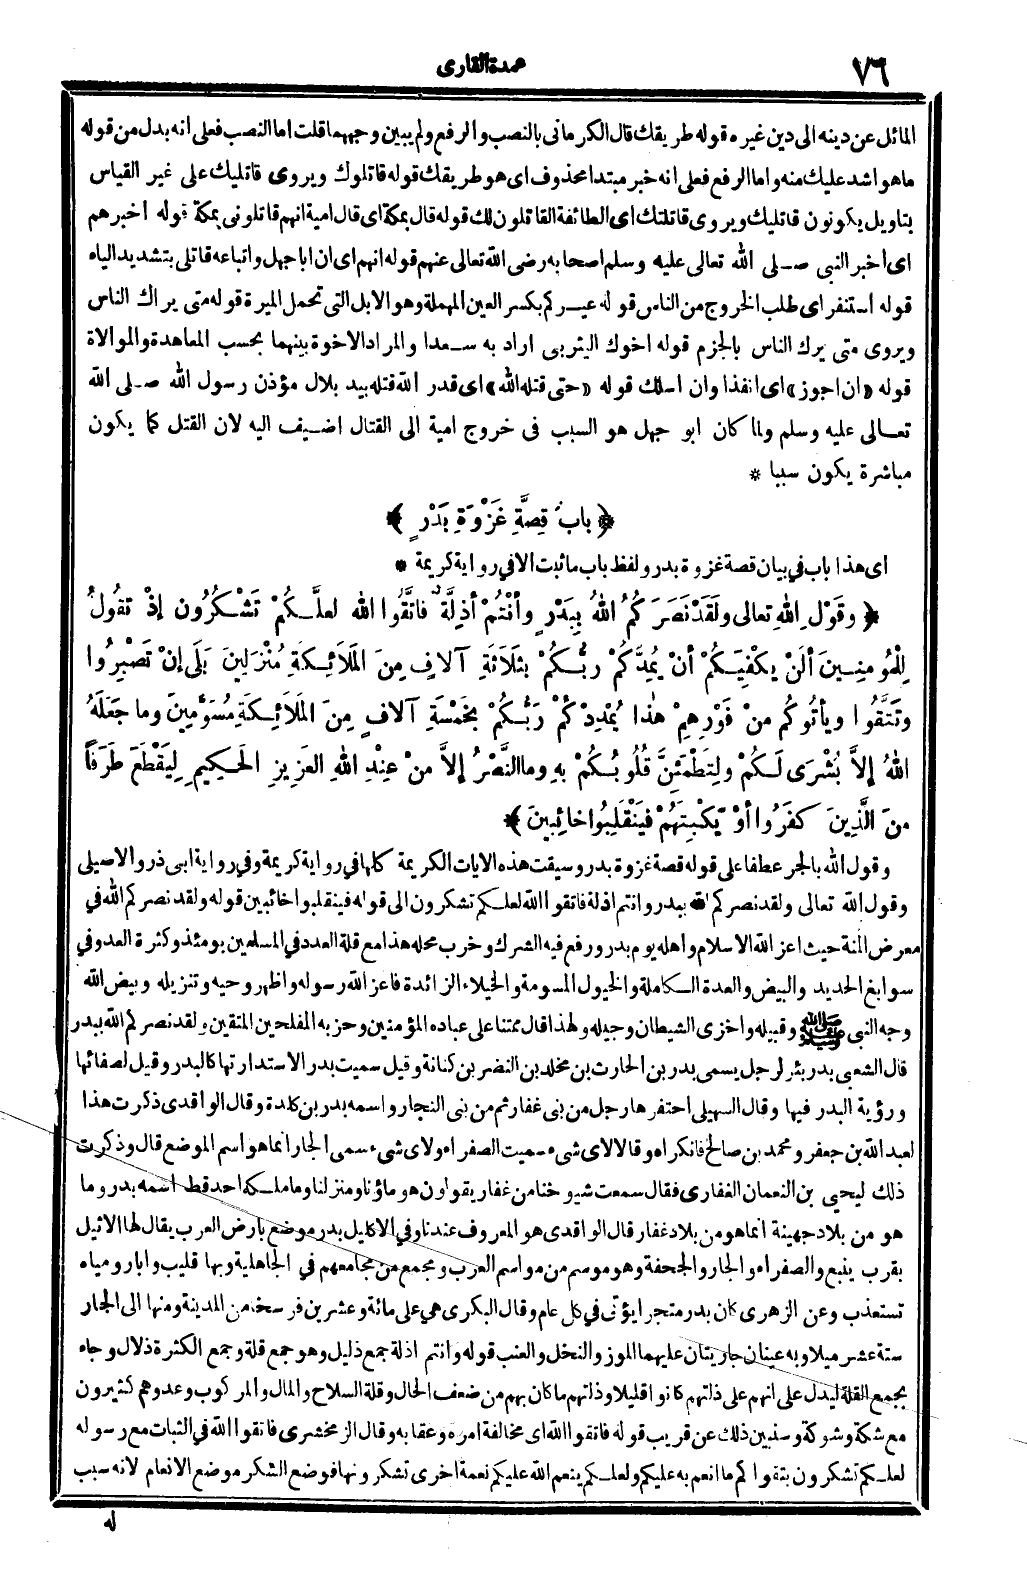 ٧٦
عمدة القارى
المائل عن دينه الى دين غيره قوله طريقك قال الكرمانى بالنصب والرفع ولم يبين وجههما قلت اما النصب فعلى انه بدل من قوله
ما هو اشد عليك منه واما الرفع فعلى انه خبر مبتدا محذوف اى هو طريقك قوله قاتلوك ويروى قاتليك على غير القياس
بتاويل يكونون قاتليك ويروى قاتلتك اى الطائفة القاتلون لك قوله قال بمكة اى قال امية انهم قاتلونى بمكة قوله اخبرهم
اى اخبر النبي صلى الله تعالى عليه وسلم اصحابه رضى الله تعالى عنهم قوله انهم اى ان ابا جهل واتباعه قاتلى بتشديد الياء
قوله استنفر اى طلب الخروج من الناس قوله عيركم بكسر العين المهملة وهو الابل التى تحمل الميرة قوله متى يراك الناس
ويروى متى يرك الناس بالجزم قوله اخوك اليثربى اراد به سعدا والمراد الاخوة بينهما بحسب المعاهدة والموالاة
قوله «ان اجوز» اى انفذ او ان اسلك قوله «حتى قتله الله» اى قدر الله قتله بيد بلال مؤذن رسول الله صلى الله
تعالى عليه وسلم ولما كان ابو جهل هو السبب فى خروج امية الى القتال اضيف اليه لان القتل كما يكون
مباشرة يكون سببا *
﴿ بابُ قِصَّةِ غَزْوَةِ بَدْرٍ ﴾
اى هذا باب في بيان قصة غزوة بدر ولفظ باب ما ثبت الا في رواية كريمة *
﴿ وقَوْلِ اللهِ تعالى ولَقَدْ نَصَرَكُمُ اللهُ بِبَدْرٍ وأنْتُمْ أذِلَّةٌ فاتَّقُوا الله لعلَّكُمْ تَشْكُرُون إذْ تقُولُ
لِلْمُومِنِينَ ألَنْ يكْفِيَكُمْ أنْ يُمِدَّكُمْ ربُّكُمْ بثَلَاثَةِ آلافٍ مِنَ المَلَائِكَةِ مُنْزَلِينَ بَلَى إنْ تَصْبِرُوا
وتَتَّقُوا ويأتُوكُم مِنْ فَوْرِهِمْ هذَا يُمْدِدْكُمْ رَبُّكُمْ بخَمْسَةِ آلافٍ مِنَ المَلَائِكَةِ مُسَوِّمِينَ وما جعَلَهُ
اللهُ إلاَّ بُشْرَى لَكُمْ ولِتَطْمَئِنَّ قُلُوبُكُمْ بهِ وما النَّصْرُ إلاَّ مِنْ عِنْدِ اللهِ العَزِيزِ الحَكِيمِ لِيَقْطَعَ طَرَفاً
مِنَ الَّذِينَ كفَرُوا أوْ يَكْبِتَهُمْ فَيَنْقَلِبُوا خائِبِينَ ﴾
وقول الله بالجر عطفا على قوله قصة غزوة بدر وسيقت هذه الايات الكريمة كلها في رواية كريمة وفي رواية ابى ذر والاصيلى
وقول الله تعالى ولقد نصركم الله ببدر وانتم اذلة فاتقوا الله لعلكم تشكرون الى قوله فينقلبوا خائبين قوله ولقد نصركم الله في
معرض المنة حيث اعز الله الاسلام واهله يوم بدر ورفع فيه الشرك وخرب محله هذا مع قلة العدد في المسلمين يومئذ وكثرة العدو في
سوابغ الحديد والبيض والعدة الكاملة والخيول المسومة والخيلاء الزائدة فاعز الله رسوله واظهر وحيه وتنزيله وبيض الله
وجه النبى ﷺ وقبيله واخزى الشيطان وجيله ولهذا قال ممتنا على عباده المؤمنين وحزبه المفلحين المتقين ولقد نصركم الله ببدر
قال الشعبى بدر بئر لرجل يسمى بدر بن الحارث بن مخلد بن النضر بن كنانة وقيل سميت بدر الاستدارتها كالبدر وقيل لصفائها
ورؤية البدر فيها وقال السهيلى احتفرها رجل من بنى غفار ثم من بنى النجار واسمه بدر بن كلدة وقال الواقدى ذكرت هذا
لعبد الله بن جعفر ومحمد بن صالح فانكراه وقالا لاى شىء سميت الصفراء ولاى شىء سمى الجار انما هو اسم الموضع قال وذكرت
ذلك ليحيى بن النعمان الغفارى فقال سمعت شيوخنا من غفار يقولون هو ماؤنا ومنزلنا وما ملكه احد قط اسمه بدر وما
هو من بلاد جهينة انما هو من بلاد غفار قال الواقدى هو المعروف عندنا وفي الاكليل بدر موضع بارض العرب يقال لها الاثيل
بقرب ينبع والصفراء والجار والجحفة وهو موسم من مواسم العرب ومجمع من مجامعهم في الجاهلية وبها قليب وابار ومياه
تستعذب وعن الزهرى كان بدر متجرا يؤتى في كل عام وقال البكرى هي على مائة وعشرين فرسخا من المدينة ومنها الى الجار
ستة عشر ميلا وبه عينان جاريتان عليهما الموز والنخل والعنب قوله وانتم اذلة جمع ذليل وهو جمع قلة وجمع الكثرة ذلال وجاء
بجمع القلة ليدل على انهم على ذلتهم كانوا قليلا وذلتهم ما كان بهم من ضعف الحال وقلة السلاح والمال والمركوب وعدوهم كثيرون
مع شكة وشوكة وسنبين ذلك عن قريب قوله فاتقوا الله اى مخالفة امره وعقابه وقال الزمخشرى فاتقوا الله في الثبات مع رسوله
لعلكم تشكرون بتقواكم ما انعم به عليكم ولعلكم ينعم الله عليكم نعمة اخرى تشكرونها فوضع الشكر موضع الانعام لانه سبب
له